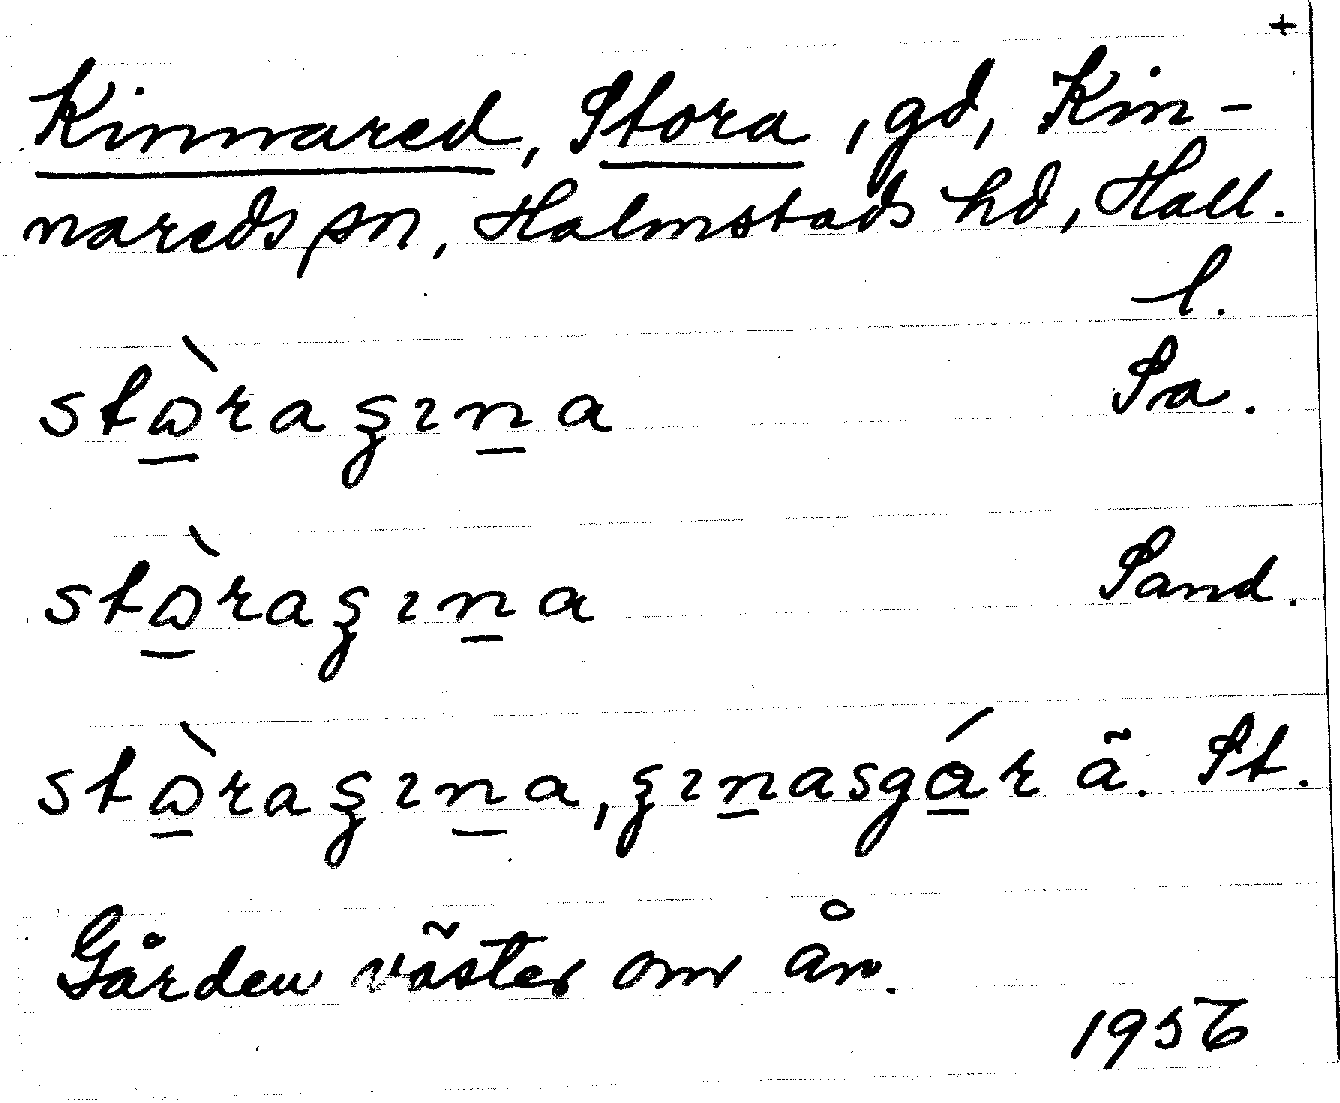 +
Kinnared, Stora, gd, Kin-
nareds sn, Halmstads hd, Hall.
l.
stɷ̀raʂɪna Sa.
stɷ̀raʂɪna Sand.
stɷ̀raʂɪna, ʂɪnasgár ä. St.
Gården väster om ån.
1956